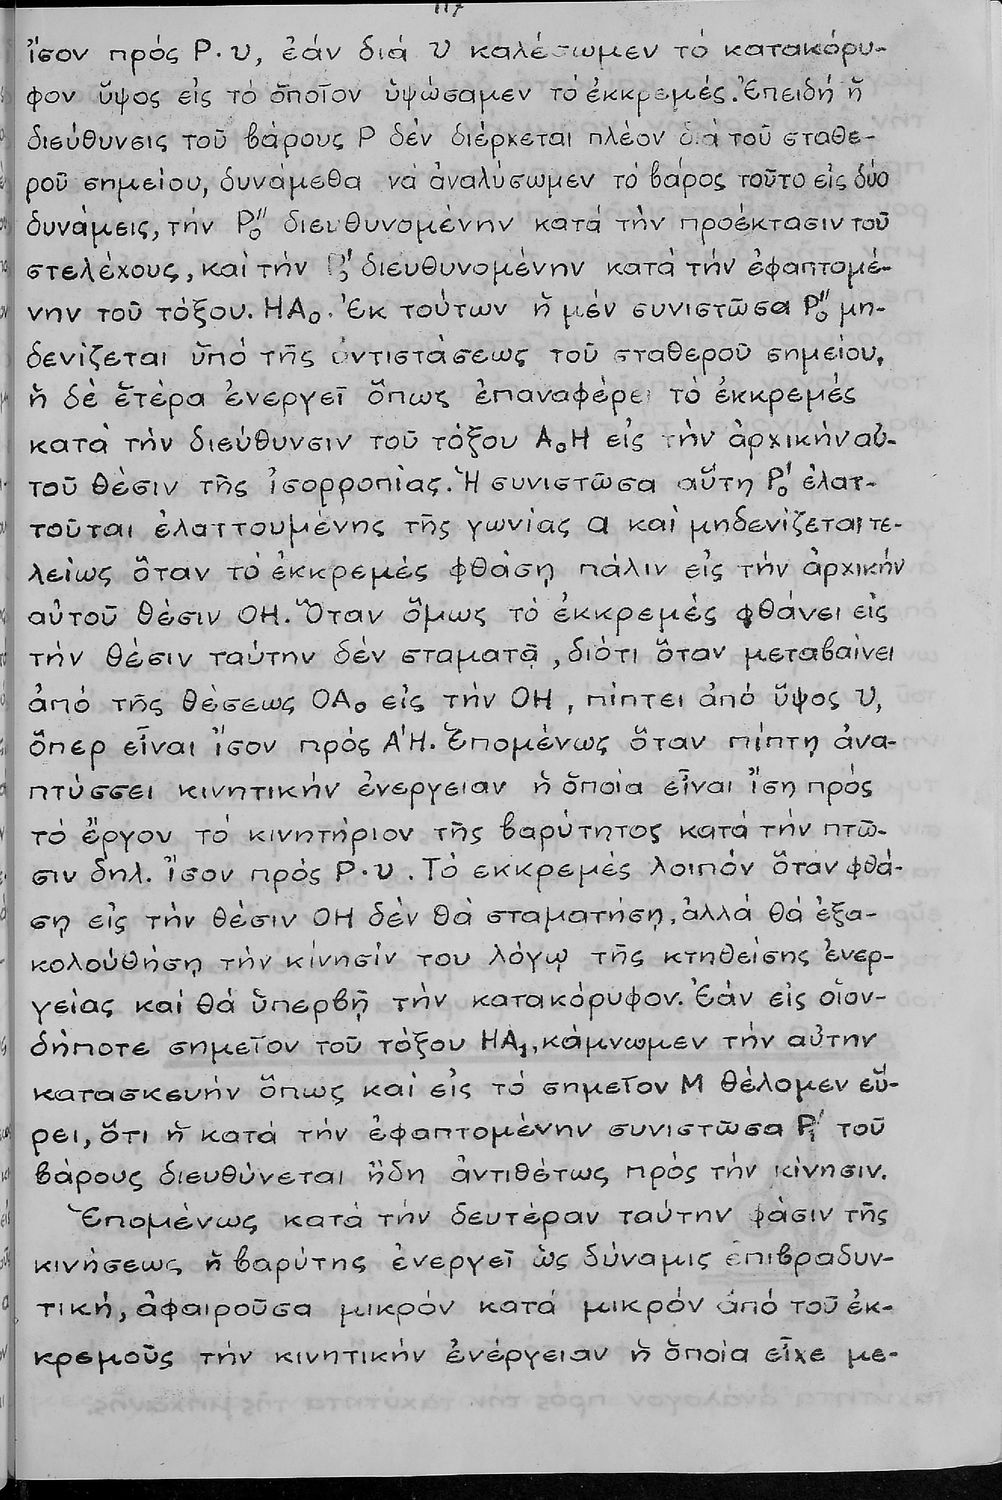 117
ἴσον πρός Ρ·υ, ἐάν διά υ καλέσωμεν τό κατακόρυ-
φον ὕψος εἰς τό ὁποῖον ὑψώσαμεν τό ἐκκρεμές. Ἐπειδή ἡ
διεύθυνσις τοῦ βάρους Ρ δέν διέρχεται πλέον διά τοῦ σταθε-
ροῦ σημείου, δυνάμεθα νά ἀναλύσωμεν τό βάρος τοῦτο εἰς δύο
δυνάμεις, τήν Ρ₀″ διευθυνομένην κατά τήν προέκτασιν τοῦ
στελέχους, καί τήν Ρ₀′ διευθυνομένην κατά τήν ἐφαπτομέ-
νην τοῦ τόξου. ΗΑ₀. Ἐκ τούτων ἡ μέν συνιστῶσα Ρ₀″ μη-
δενίζεται ὑπό τῆς ἀντιστάσεως τοῦ σταθεροῦ σημείου,
ἡ δέ ἑτέρα ἐνεργεῖ ὅπως ἐπαναφέρει τό ἐκκρεμές
κατά τήν διεύθυνσιν τοῦ τόξου Α₀Η εἰς τήν ἀρχικήν αὐ-
τοῦ θέσιν τῆς ἰσορροπίας. Ἡ συνιστῶσα αὕτη Ρ₀′ ἐλατ-
τοῦται ἐλαττουμένης τῆς γωνίας α καί μηδενίζεται τε-
λείως ὅταν τό ἐκκρεμές φθάσῃ πάλιν εἰς τήν ἀρχικήν
αὐτοῦ θέσιν ΟΗ. Ὅταν ὅμως τό ἐκκρεμές φθάνει εἰς
τήν θέσιν ταύτην δέν σταματᾷ, διότι ὅταν μεταβαίνει
ἀπό τῆς θέσεως ΟΑ₀ εἰς τήν ΟΗ, πίπτει ἀπό ὕψος υ,
ὅπερ εἶναι ἴσον πρός Α′Η. Ἑπομένως ὅταν πίπτῃ ἀνα-
πτύσσει κινητικήν ἐνέργειαν ἡ ὁποία εἶναι ἴση πρός
τό ἔργον τό κινητήριον τῆς βαρύτητος κατά τήν πτῶ-
σιν δηλ. ἴσον πρός Ρ·υ. Τό εκκρεμές λοιπόν ὅταν φθά-
σῃ εἰς τήν θέσιν ΟΗ δέν θά σταματήσῃ, ἀλλά θά ἐξα-
κολούθήσῃ τήν κίνησίν του λόγῳ τῆς κτηθείσης ἐνερ-
γείας καί θά ὑπερβῇ τήν κατακόρυφον. Ἐάν εἰς οἷον-
δήποτε σημεῖον τοῦ τόξου ΗΑ₁, κάμνωμεν τήν αὐτην
κατασκευήν ὅπως καί εἰς τό σημεῖον Μ θέλομεν εὕ-
ρει, ὅτι ἡ κατά τήν ἐφαπτομένην συνιστῶσα Ρ₁′ τοῦ
βάρους διευθύνεται ἤδη ἀντιθέτως πρός τήν κίνησιν.
Ἑπομένως κατά τήν δευτέραν ταύτην φάσιν τῆς
κινήσεως ἡ βαρύτης ἐνεργεῖ ὡς δύναμις ἐπιβραδυν-
τική, ἀφαιροῦσα μικρόν κατά μικρόν ἀπό τοῦ ἐκ-
κρεμοῦς τήν κινητικήν ἐνέργειαν ἡ ὁποία εἶχε με-